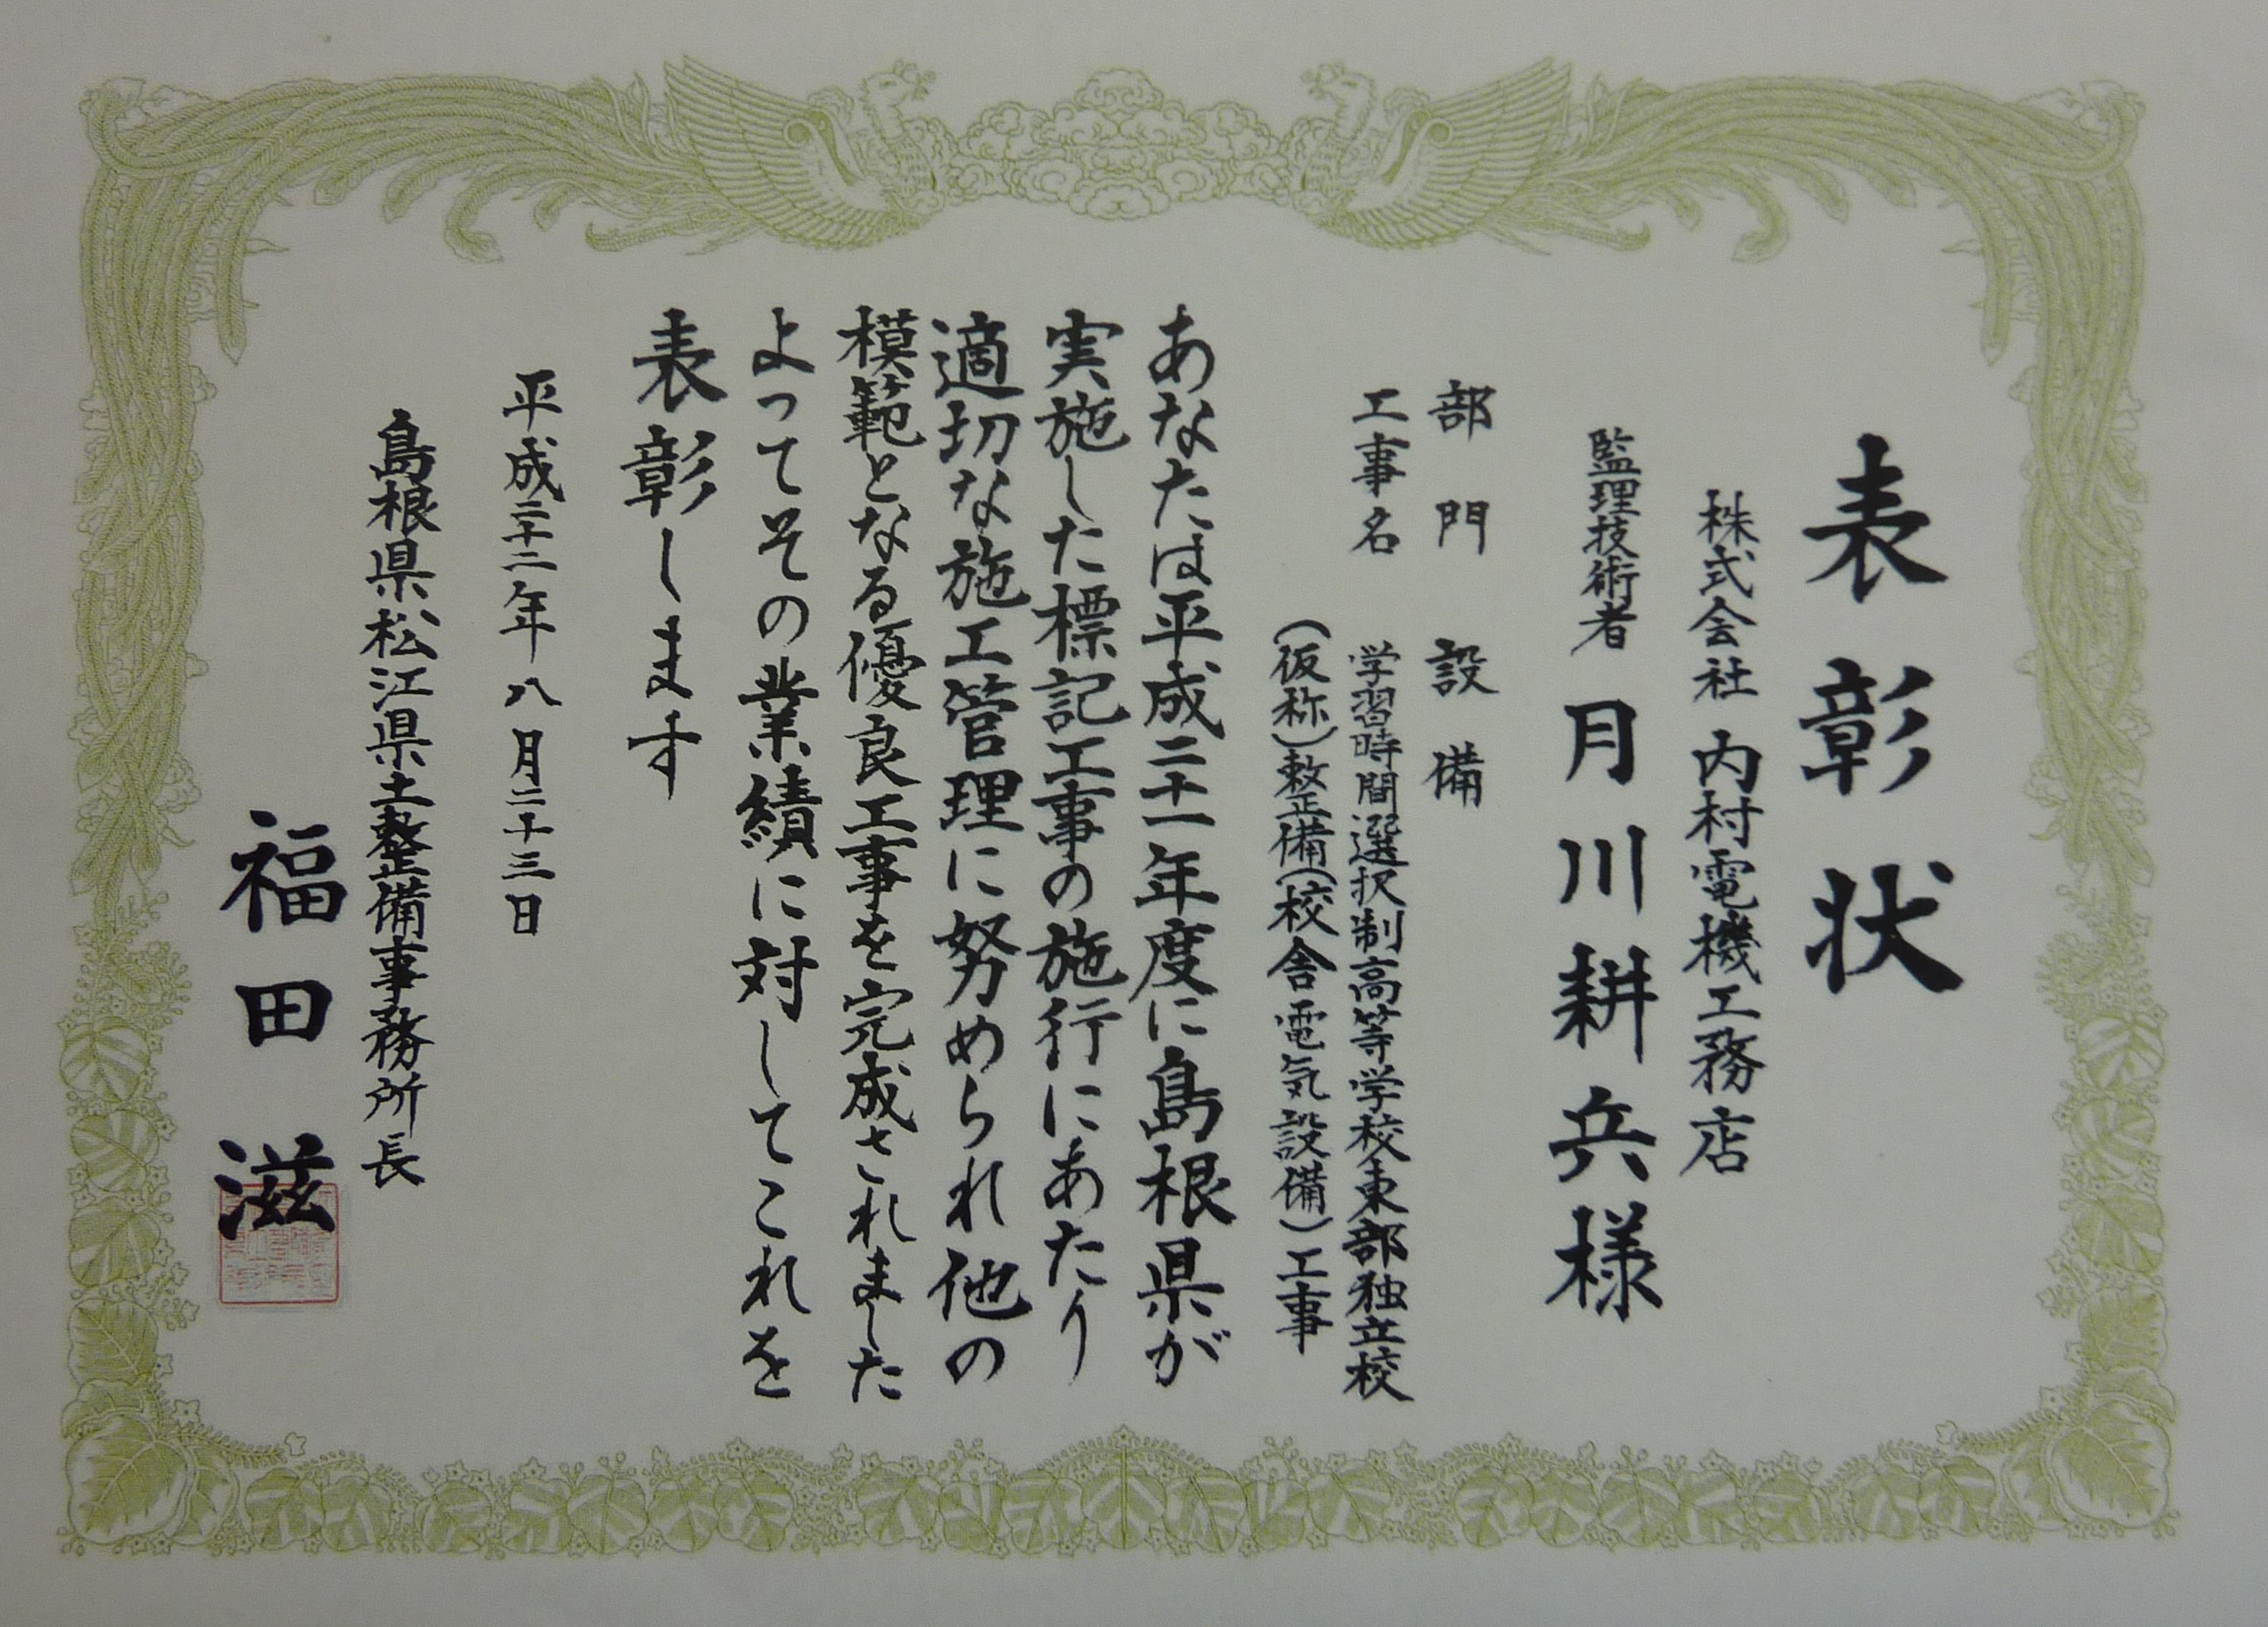 表彰状
株式会社 内村電機工務店
監理技術者 月川耕兵様
部門 設備
工事名 学習時間選択制高等学校東部独立校
(仮称)整備(校舎電気設備)工事
あなたは平成二十一年度に島根県が
実施した標記工事の施行にあたり
適切な施工管理に努められ他の
模範となる優良工事を完成されました
よってその業績に対してこれを
表彰します
平成二十二年八月二十三日
島根県松江県土整備事務所長
福田滋